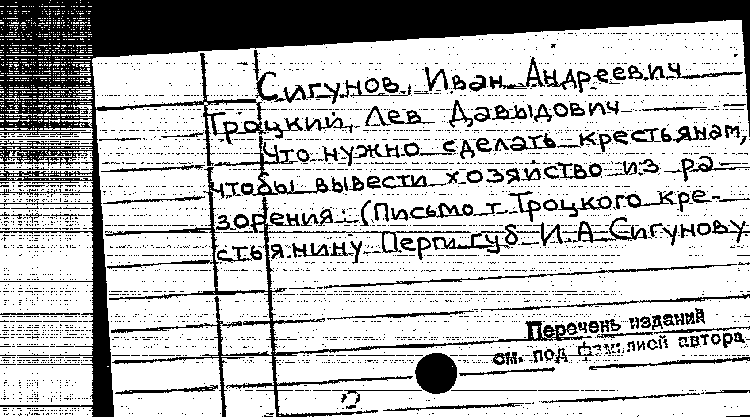 Сигунов, Иван Андреевич
Троцкий, Лев Давыдович
Что нужно сделать крестьянам,
чтобы вывести хозяйство из ра-
зорения. (Письмо т. Троцкого кре-
стьянину Перм. губ И. А. Сигунову
Перечень изданий
см. под фамилией автора